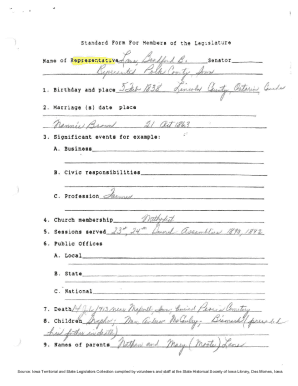 Standard Form For Members of the Legislature
Name of Representative Lane, Bradford B. Senator
Represented Polk County, Iowa
1. Birthday and place 5 Feb 1838 Lincoln County, Ontario, Canada
2. Marriage (s) date place
Nannie Brown 21 Oct 1863
3. Significant events for example:
A. Business
B. Civic responsibilities
C. Profession Farmer
4. Church membership Methodist
5. Sessions served 23rd, 24th General Assemblies 1890, 1892
6. Public Offices
A. Local
B. State
C. National
7. Death 14 July 1913 near Maxwell, Iowa, buried County
8. Children Mrs.
9. Names of parents Nathan and Mary (Moote) Lane
Source: Iowa Territorial and State Legislators Collection compiled by volunteers and staff at the State Historical Society of Iowa Library, Des Moines, Iowa.